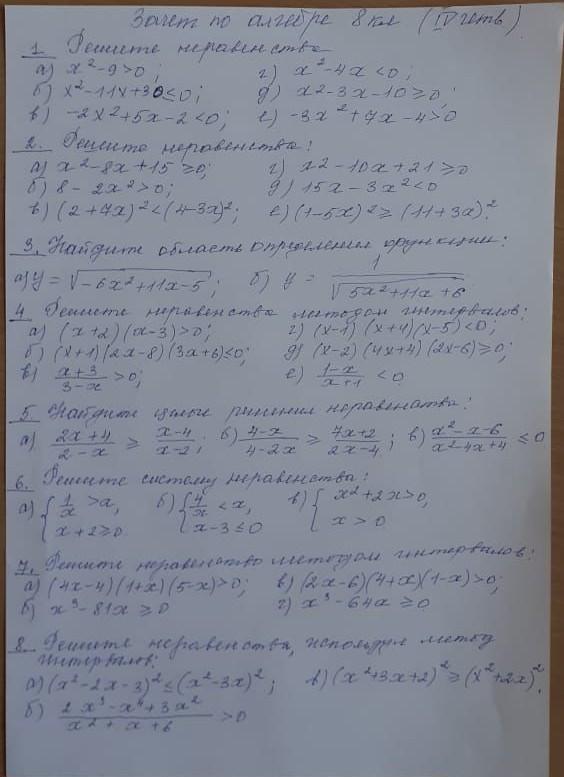 Зачет по алгебре 8 кл (IV четв)
1. Решите неравенства
а) x²-9>0; г) x²-4x<0;
б) x²-11x+30≤0; д) x²-3x-10≥0;
в) -2x²+5x-2<0; е) -3x²+7x-4>0
2. Решите неравенства:
а) x²-8x+15≥0; г) x²-10x+21≥0
б) 8-2x²>0; д) 15x-3x²<0
в) (2+7x)²<(4-3x)²; е) (1-5x)²≥(11+3x)².
3. Найдите область определения функции:
а) y=√(-6x²+11x-5); б) y = 1/√(5x²+11x+6)
4 Решите неравенства методом интервалов:
а) (x+2)(x-3)>0; г) (x-1)(x+4)(x-5)<0;
б) (x+1)(2x-8)(3x+6)≤0; д) (x-2)(4x+4)(2x-6)≥0;
в) (x+3)/(3-x) >0; е) (1-x)/(x+1) <0
5 Найдите целые решения неравенства:
а) (2x+4)/(2-x) ≥ (x-4)/(x-2); б) (4-x)/(4-2x) ≥ (7x+2)/(2x-4); в) (x²-x-6)/(x²-4x+4) ≤0
6. Решите систему неравенств:
а) { 1/x >a, б) { 4/x <x, в) { x²+2x>0,
x+2≥0 x-3≤0 x>0
7. Решите неравенство методом интервалов:
а) (4x-4)(1+x)(5-x)>0; в) (2x-6)(4+x)(1-x)>0;
б) x³-81x≥0 г) x³-64x≥0
8. Решите неравенства, используя метод
интервалов:
а) (x²-2x-3)²≤(x²-3x)²; в) (x²+3x+2)²≥(x²+2x)².
б) (2x³-x⁴+3x²)/(x²+x+6) >0